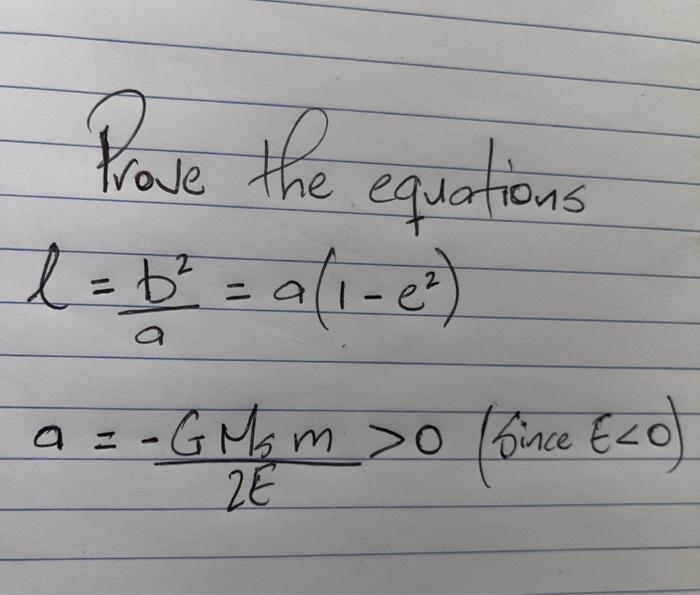 Prove the equations
l = b²/a = a(1 - e²)
a = - G Ms m / 2E > 0 (Since E < 0)